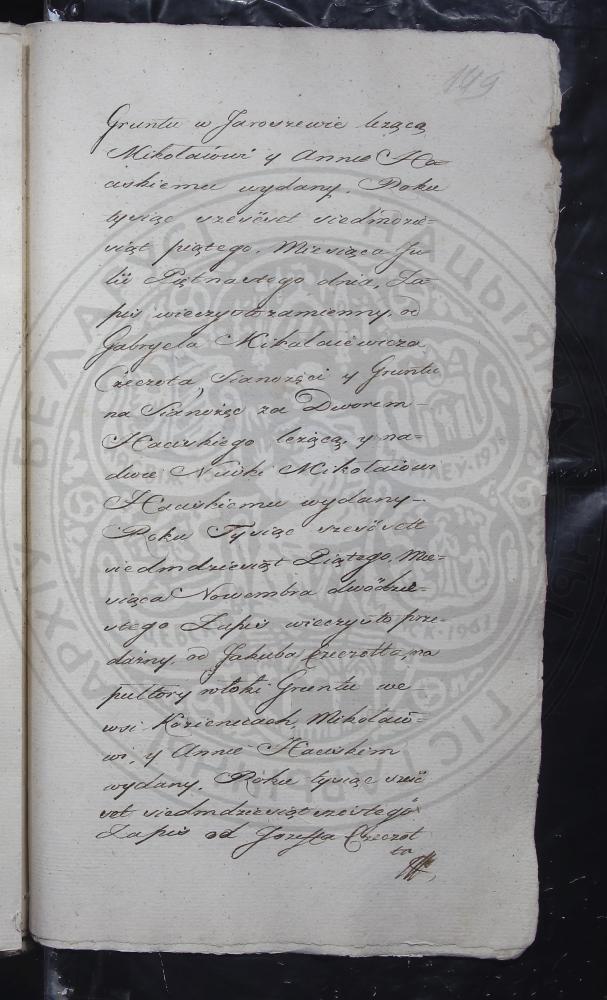 149
Gruntu w Jaroszewie leżącą
Mikołaiowi y Annie Ha-
ckiemu wydany. Roku
tysiąc szesćset siedmdzie-
siąt piątego, Miesiąca Ju-
lii Piętnastego dnia, Za-
pis wieczysto zamienny, od
Gabryela Mikołaiewicza
Czeczota, Sianożęci y Gruntu
na Sianożęc za Dworem
Hackiego leżącą, y na-
dwie Niwki Mikołaiowi
Hackiemu wydany-
Roku Tysiąc szesćset
siedmdziesiąt Piątego, Mie-
siąca Nowembra dwódzie-
stego Zapis wieczysto prze-
dażny od Jakuba Czeczotta, na
pułtory włoki Gruntu we
wsi Kozieniczach, Mikołaio-
wi, y Annie Hackim
wydany. Roku tysiąc sześć
set siedmdziesiąt szóstego
Zapis od Jozeffa Czeczot
ta